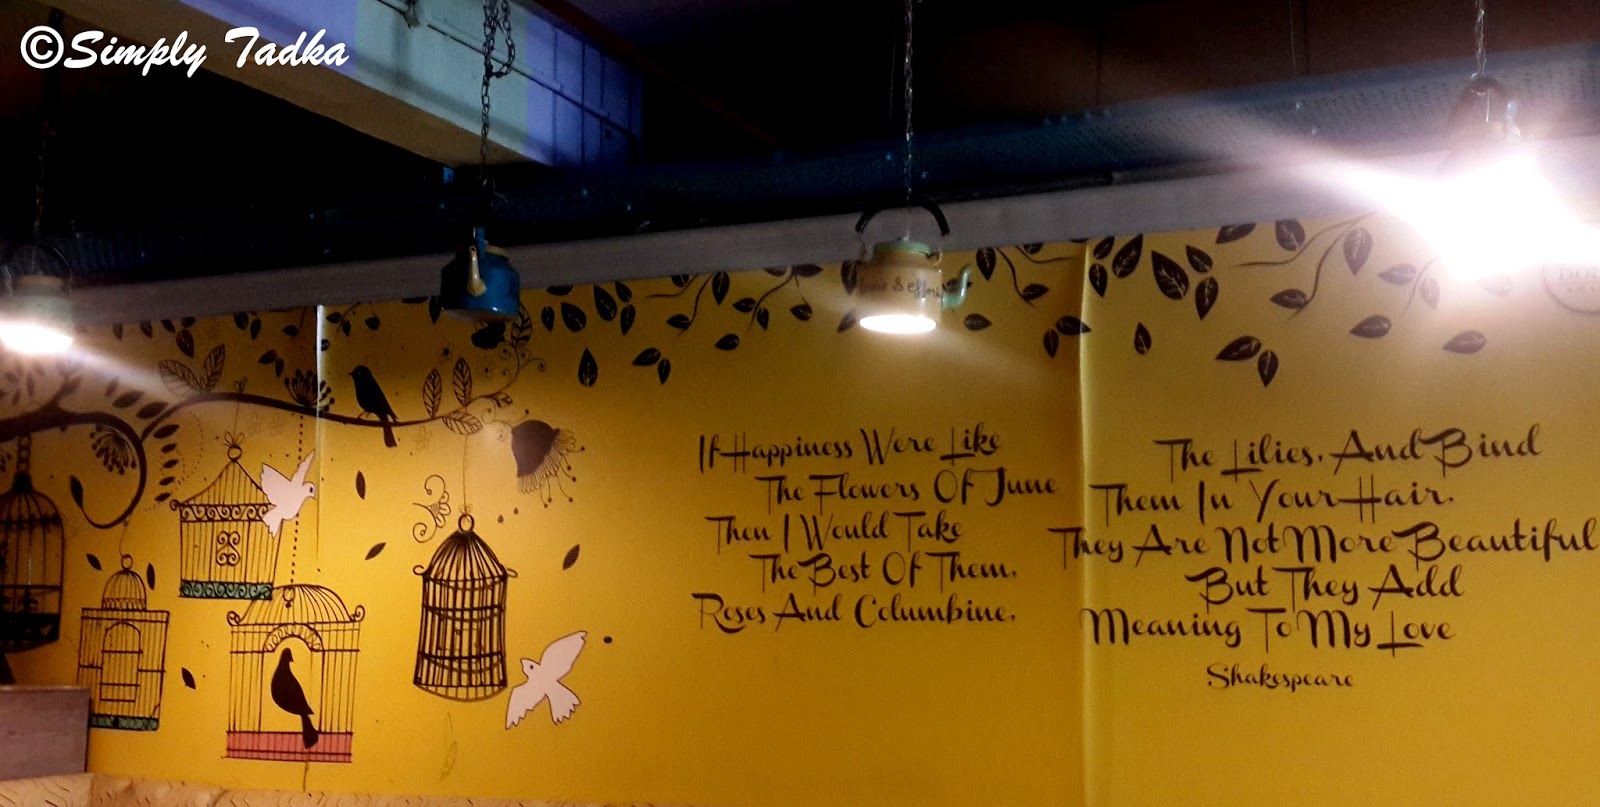 ©Simply Tadka
If Happiness Were Like
The Flowers Of June
Then I Would Take
The Best Of Them,
Roses And Columbine,
The Lilies, And Bind
Them In Your Hair.
They Are Not More Beautiful
But They Add
Meaning To My Love
Shakespeare